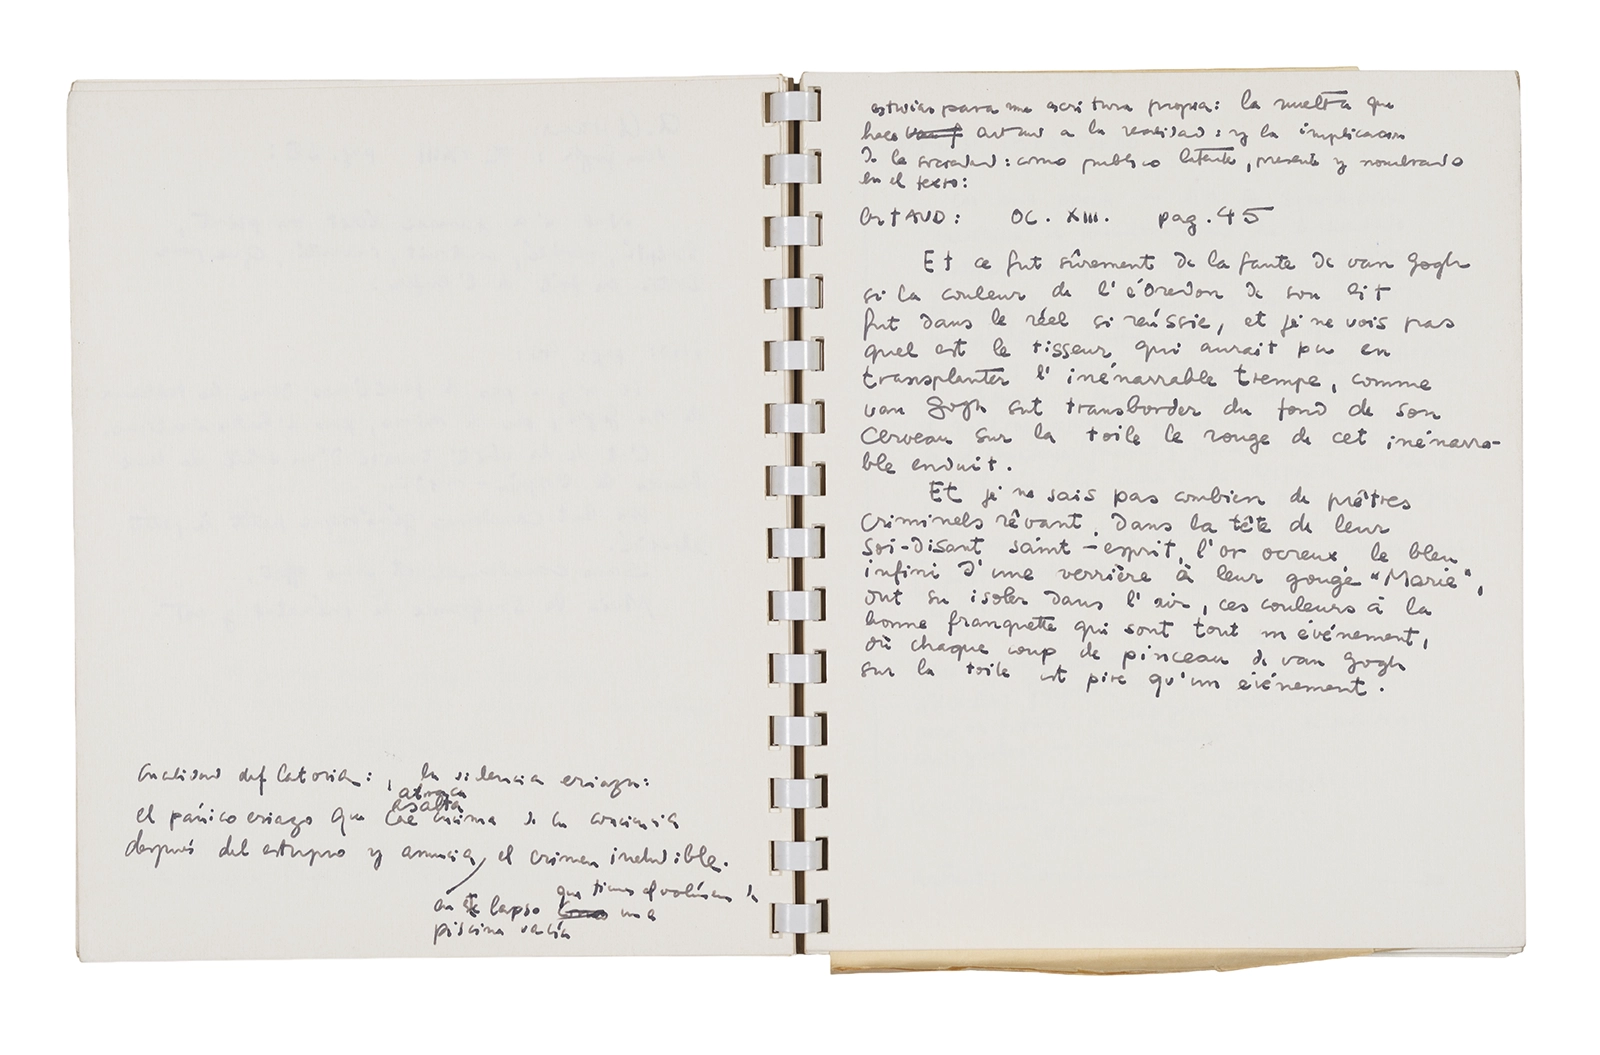 analidad def latoria: , la silencia eriaza:
atraca
asalta
el pánico eriazo que cae encima de la conciencia
después del estupro y anuncia el crimen ineludible.
que tiene el volúmen de
en el lapso una
piscina vacía
estudiar para mi escritura propia: la vuelta que
hace Artaud a la realidad: y la implicación
de la sociedad: como publico latente, presente y nombrado
en el texto:
ArtAUD: OC. XIII. pag. 45
Et ce fut sûrement de la faute de van Gogh
si la couleur de l'édredon de son lit
fut dans le réel si réussie, et je ne vois pas
quel est le tisseur qui aurait pu en
transplanter l'inénarrable trempe, comme
van Gogh sut transborder du fond de son
cerveau sur la toile le rouge de cet inénarra-
ble enduit.
Et je ne sais pas combien de prêtres
criminels rêvant dans la tête de leur
soi-disant saint-esprit, l'or ocreux le bleu
infini d'une verrière à leur gouge "Marie",
ont su isoler dans l'air, ces couleurs à la
bonne franquette qui sont tout un événement,
où chaque coup de pinceau de van Gogh
sur la toile est pire qu'un événement.